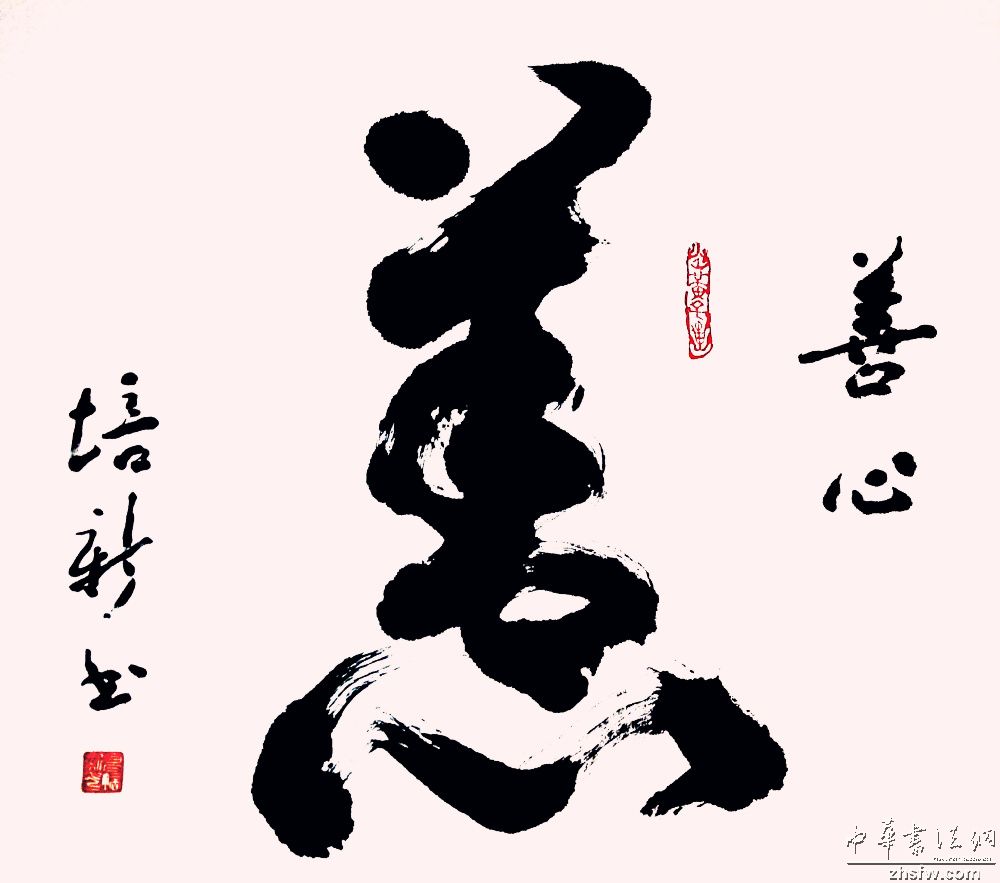 善心
善心
培新书
中华书法网
zhsfw.com